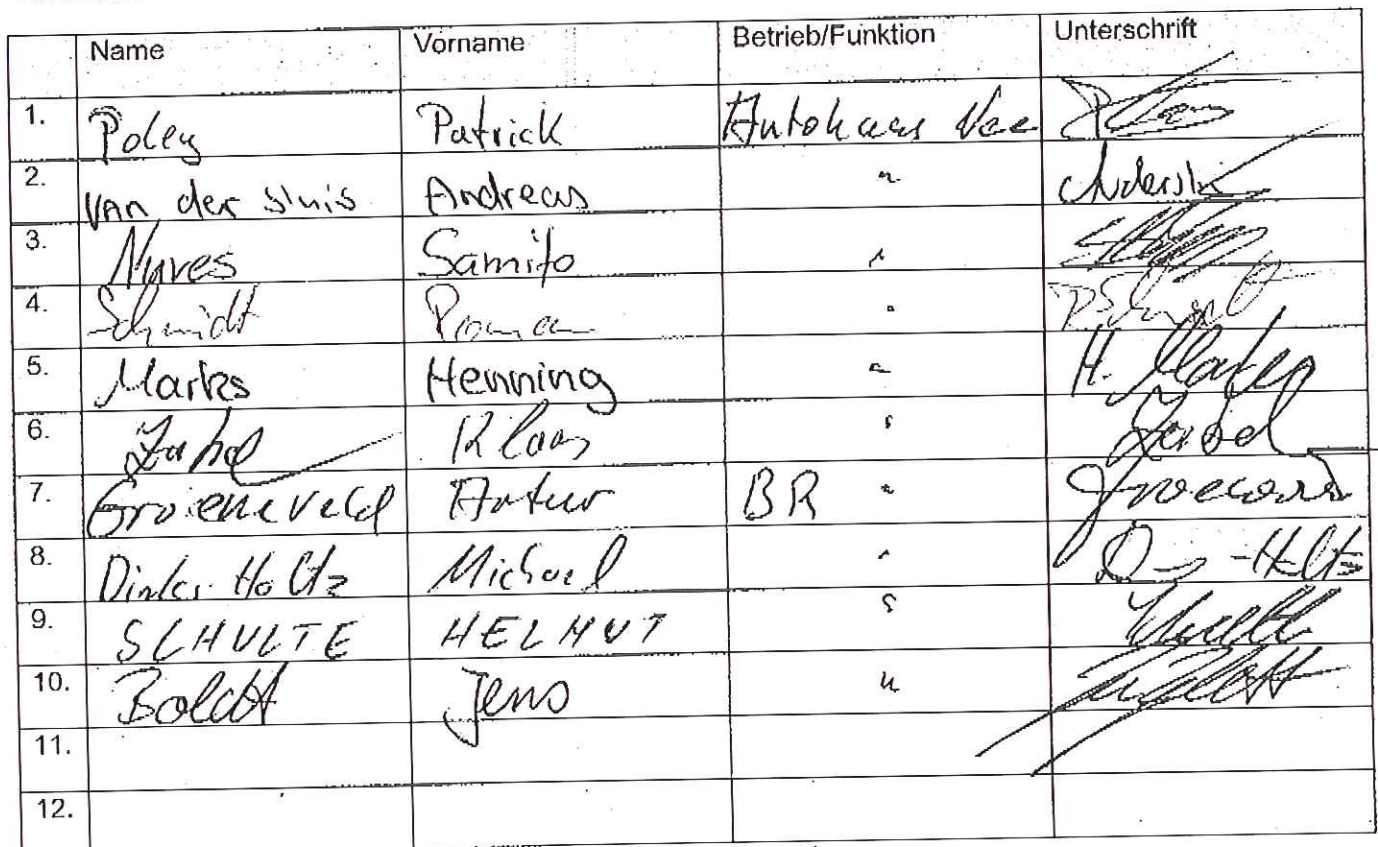 Name Vorname Betrieb/Funktion Unterschrift
1. Poley Patrick Autohaus
2. van der Sluis Andreas "
3. Nuves Samito "
4. Schmidt Roman "
5. Marks Henning " H. Marks
6. Zabel Klaas " Zabel
7. Groeneveld Artur BR "
8. Dirks-Holtz Michael " D -Holtz
9. SCHULTE HELMUT "
10. Boldt Jens "
11.
12.